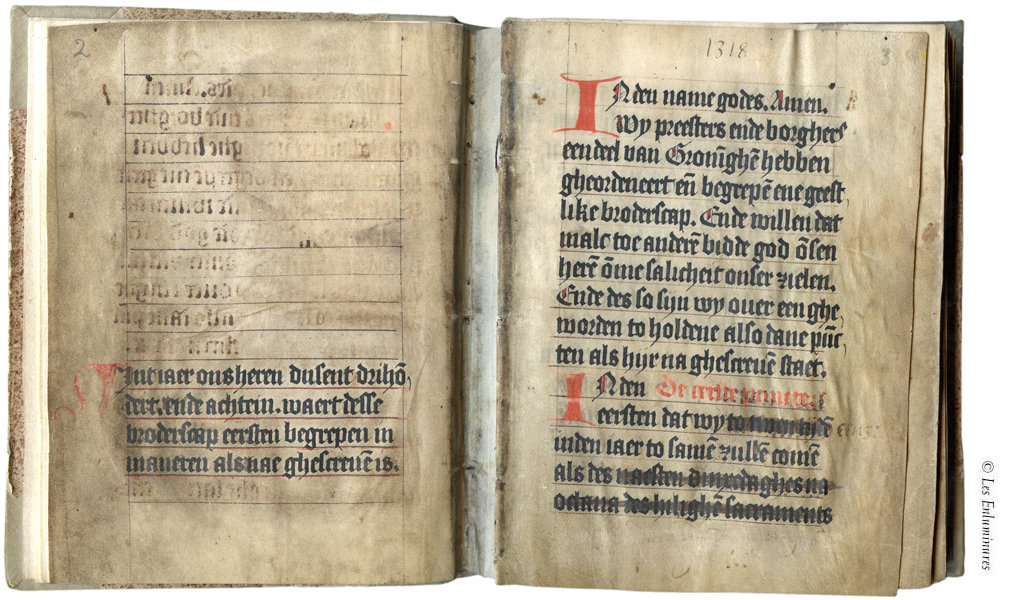 2
Int iaer ons heren dusent drihō
dert. ende achtein. waert desse
broderscap eersten begrepen in
maneren als nae ghescreuē is.
1318
3
In den name godes. Amen.
Wy preesters ende borghers
een deel van Gronīghē hebben
gheordeneert eñ begrepē ene geest
like broderscap. Ende willen dat
malc toe anderē bidde god ōsen
herē ōme salicheit onser zielen.
Ende des so syn wy ouer een ghe
worden to holdene also dane pūc
ten als hyr na ghescreuē staet.
In den De eerste punte
eersten dat wy to
inden iaer to samē zullē comē
als des naesten dinxedaghes na
octaua des hilighē sacraments
© Les Enluminures